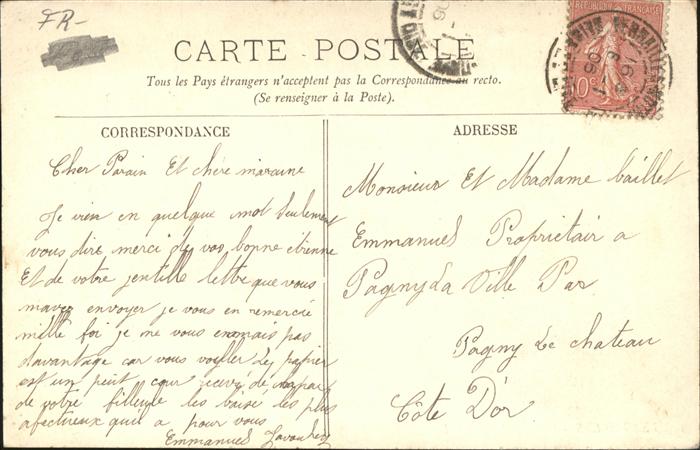 FR-
CARTE POSTALE
Tous les Pays étrangers n'acceptent pas la Correspondance au recto.
(Se renseigner à la Poste).
CORRESPONDANCE
Cher Parain Et chère maraine
Je vien en quelque mot seulement
vous dire merci de vos bonne étrenne
Et de votre jentille lettre que vous
mavez envoyer je vous en remercie
mille foi je ne vous en mais pas
davantage car vous le papier
est un petit cour de la part
de votre filleule les baisé les plus
afectueux quil a pour vous
Emmanuel
ADRESSE
Monsieur Et Madame Caillet
Emmanuel Propriétair a
Pagny La Ville Par
Pagny Le chateau
Côte D'or
REPUBLIQUE FRANCAISE
10